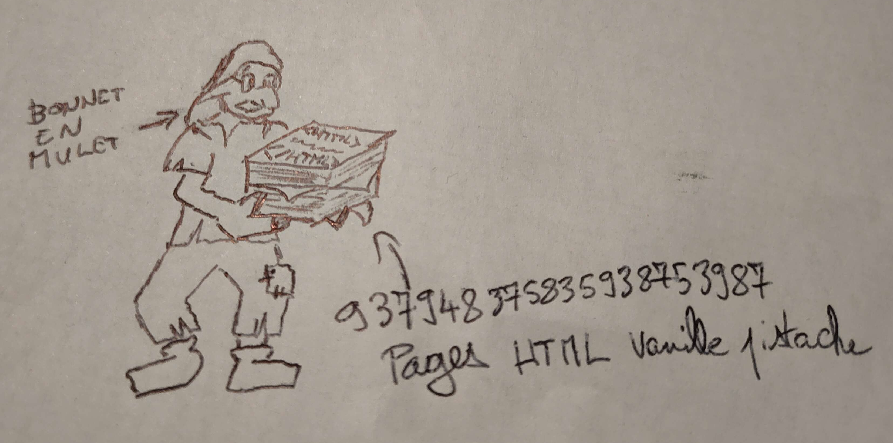 BONNET
EN
MULET
<HTML>
</HTML>
937948375835938753987
Pages HTML vanille pistache